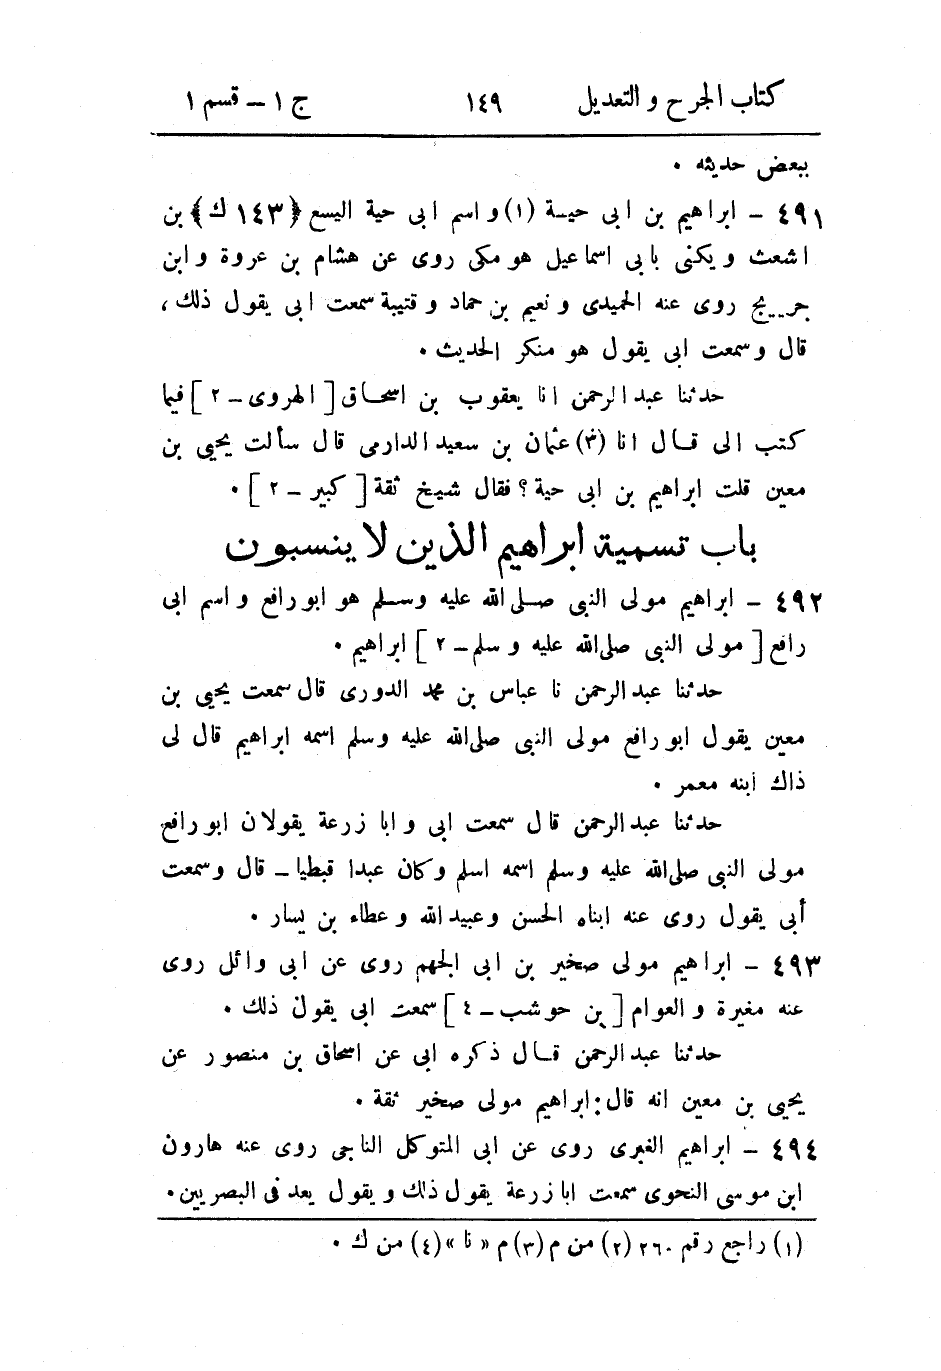 كتاب الجرح و التعديل ١٤٩ ج ١ – قسم ١
ببعض حديثه .
٤٩١ – ابراهيم بن ابى حيـة (١) و اسم ابى حية اليسع ﴿١٤٣ ك﴾ بن
اشعث و يكنى بابى اسماعيل هو مكى روى عن هشام بن عروة و ابن
جريج روى عنه الحميدى و نعيم بن حماد و قتيبة سمعت ابى يقول ذلك ،
قال و سمعت ابى يقول هو منكر الحديث .
حدثنا عبد الرحمن انا يعقوب بن اسحاق [ الهروى – ٢ ] فيما
كتب الى قال انا (٣) عثمان بن سعيد الدارمى قال سألت يحيى بن
معين قلت ابراهيم بن ابى حية ؟ فقال شيخ ثقة [ كبير – ٢ ] .
باب تسمية ابراهيم الذين لا ينسبون
٤٩٢ – ابراهيم مولى النبى صلى الله عليه وسلم هو ابو رافع و اسم ابى
رافع [ مولى النبى صلى الله عليه و سلم – ٢ ] ابراهيم .
حدثنا عبد الرحمن نا عباس بن محمد الدورى قال سمعت يحيى بن
معين يقول ابو رافع مولى النبى صلى الله عليه وسلم اسمه ابراهيم قال لى
ذاك ابنه معمر .
حدثنا عبد الرحمن قال سمعت ابى و ابا زرعة يقولان ابو رافع
مولى النبى صلى الله عليه وسلم اسمه اسلم وكان عبدا قبطيا – قال و سمعت
أبى يقول روى عنه ابناه الحسن و عبيد الله و عطاء بن يسار .
٤٩٣ – ابراهيم مولى صخير بن ابى الجهم روى عن ابى وائل روى
عنه مغيرة و العوام [ بن حوشب – ٤ ] سمعت ابى يقول ذلك .
حدثنا عبد الرحمن قال ذكره ابى عن اسحاق بن منصور عن
يحيى بن معين انه قال : ابراهيم مولى صخير ثقة .
٤٩٤ – ابراهيم الغبرى روى عن ابى المتوكل الناجى روى عنه هارون
ابن موسى النحوى سمعت ابا زرعة يقول ذلك و يقول يعد فى البصريين .
(١) راجع رقم ٢٦٠ (٢) من م (٣) م « نا » (٤) من ك .